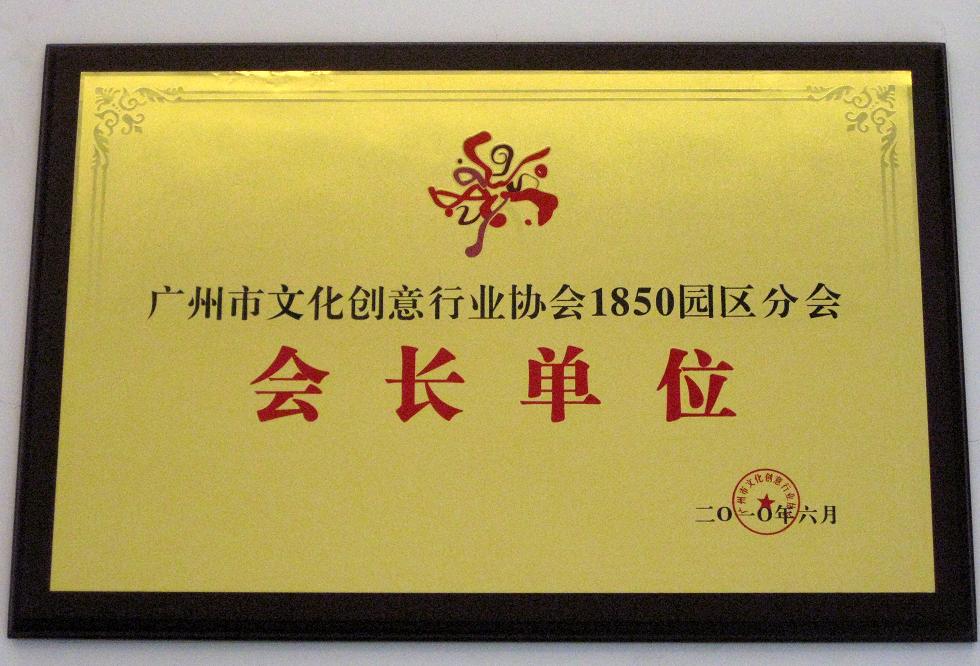 广州市文化创意行业协会1850园区分会
会长单位
广州市文化创意行业协会
二〇一〇年六月